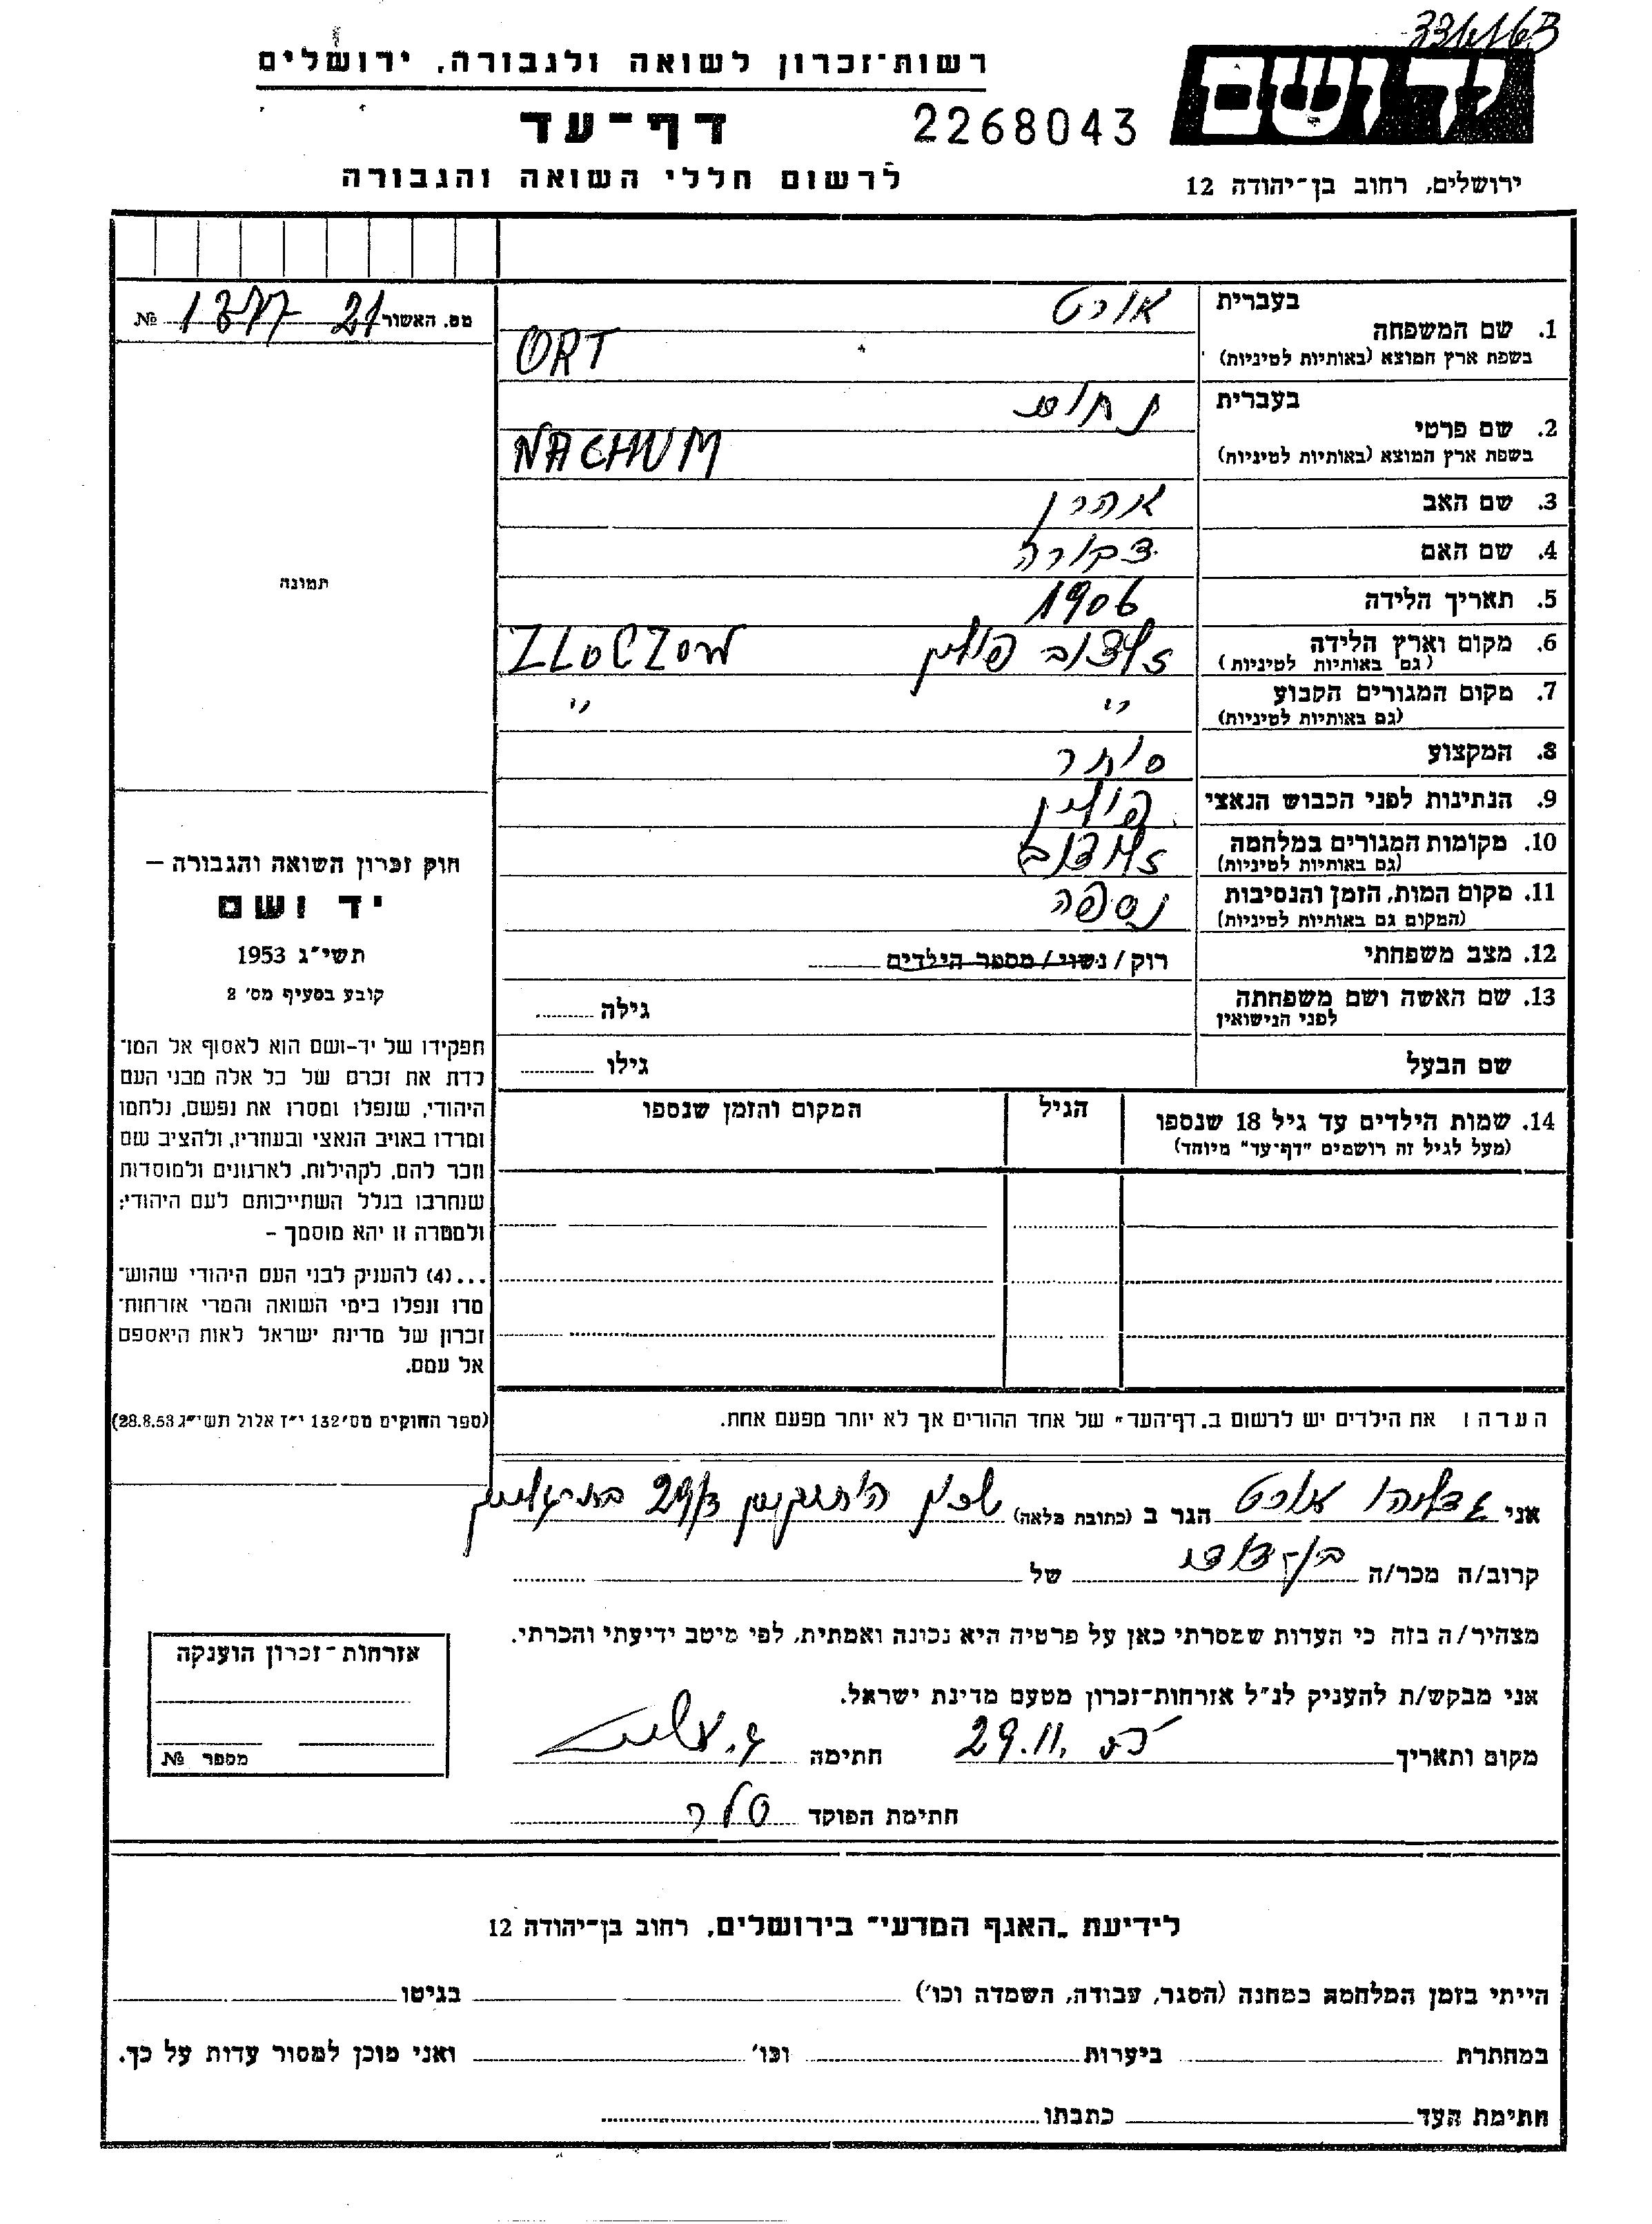 רשות־זכרון לשואה ולגבורה, ירושלים
דף־עד
2268043
יד ושם
לרשום חללי השואה והגבורה
ירושלים, רחוב בן־יהודה 12
מס. האשור 21 1377 №
בעברית
אורט
1. שם המשפחה
בשפת ארץ המוצא (באותיות לטיניות)
ORT
בעברית
נחום
2. שם פרטי
בשפת ארץ המוצא (באותיות לטיניות)
NACHUM
3. שם האב
אהרן
4. שם האם
דבורה
5. תאריך הלידה
1906
6. מקום וארץ הלידה
(גם באותיות לטיניות)
זלוצוב פולין ZLOCZOW
7. מקום המגורים הקבוע
(גם באותיות לטיניות)
" "
8. המקצוע
סוחר
9. הנתינות לפני הכבוש הנאצי
פולין
10. מקומות המגורים במלחמה
(גם באותיות לטיניות)
זלוצוב
11. מקום המות, הזמן והנסיבות
(המקום גם באותיות לטיניות)
נספה
12. מצב משפחתי
רוק / נשוי / מספר הילדים
13. שם האשה ושם משפחתה
לפני הנישואין
גילה
שם הבעל
גילו
14. שמות הילדים עד גיל 18 שנספו
(מעל לגיל זה רושמים "דף־עד" מיוחד)
הגיל
המקום והזמן שנספו
תמונה
חוק זכרון השואה והגבורה –
יד ושם
תשי"ג 1953
קובע בסעיף מס׳ 2
תפקידו של יד-ושם הוא לאסוף אל המו־
לדת את זכרם של כל אלה מבני העם
היהודי, שנפלו ומסרו את נפשם, נלחמו
ומרדו באויב הנאצי ובעוזריו, ולהציב שם
וזכר להם, לקהילות, לארגונים ולמוסדות
שנחרבו בגלל השתייכותם לעם היהודי;
ולמטרה זו יהא מוסמך –
...(4) להעניק לבני העם היהודי שהוש־
מדו ונפלו בימי השואה והמרי אזרחות־
זכרון של מדינת ישראל לאות היאספם
אל עמם.
(ספר החוקים מס׳ 132 י"ז אלול תשי"ג 28.8.53)
הערה : את הילדים יש לרשום ב„דף־העד" של אחד ההורים אך לא יותר מפעם אחת.
אני גדליהו אורט הגר ב (כתובת מלאה) שכון 29/3
קרוב/ה מכר/ה בן דודו של
מצהיר/ה בזה כי העדות שמסרתי כאן על פרטיה היא נכונה ואמתית, לפי מיטב ידיעתי והכרתי.
אני מבקש/ת להעניק לנ"ל אזרחות־זכרון מטעם מדינת ישראל.
מקום ותאריך 29.11. חתימה
חתימת הפוקד
אזרחות־זכרון הוענקה
מספר №
לידיעת „האגף המדעי" בירושלים, רחוב בן־יהודה 12
הייתי בזמן המלחמה במחנה (הסגר, עבודה, השמדה וכו׳) בגיטו
במחתרת ביערות וכו׳ ואני מוכן למסור עדות על כך.
חתימת העד כתבתו